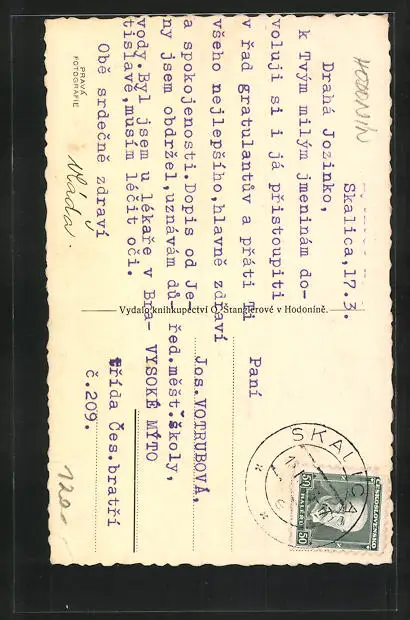 HODONÍN
Skalica,17.3.
Drahá Jozinko,
k Tvým milým jmeninám do-
voluji si i já přistoupiti
v řad gratulantův a přáti Ti
všeho nejlepšího,hlavně zdraví
a spokojenosti.Dopis od Je-
ny jsem obdržel,uznávám dů-
vody.Byl jsem u lékaře v Bra-
tislavě,musím léčit oči.
Obě srdečně zdraví
Vláďa.
PRAVÁ
FOTOGRAFIE
Vydalo knihkupectví O. Štanglerové v Hodoníně.
Paní
Jos.VOTRUBOVÁ,
řed.měšt.školy,
VYSOKÉ MÝTO
třída Čes.bratří
č.209.
120.-
SKALICA
ČESKOSLOVENSKO
50 HALÉŘŮ 50